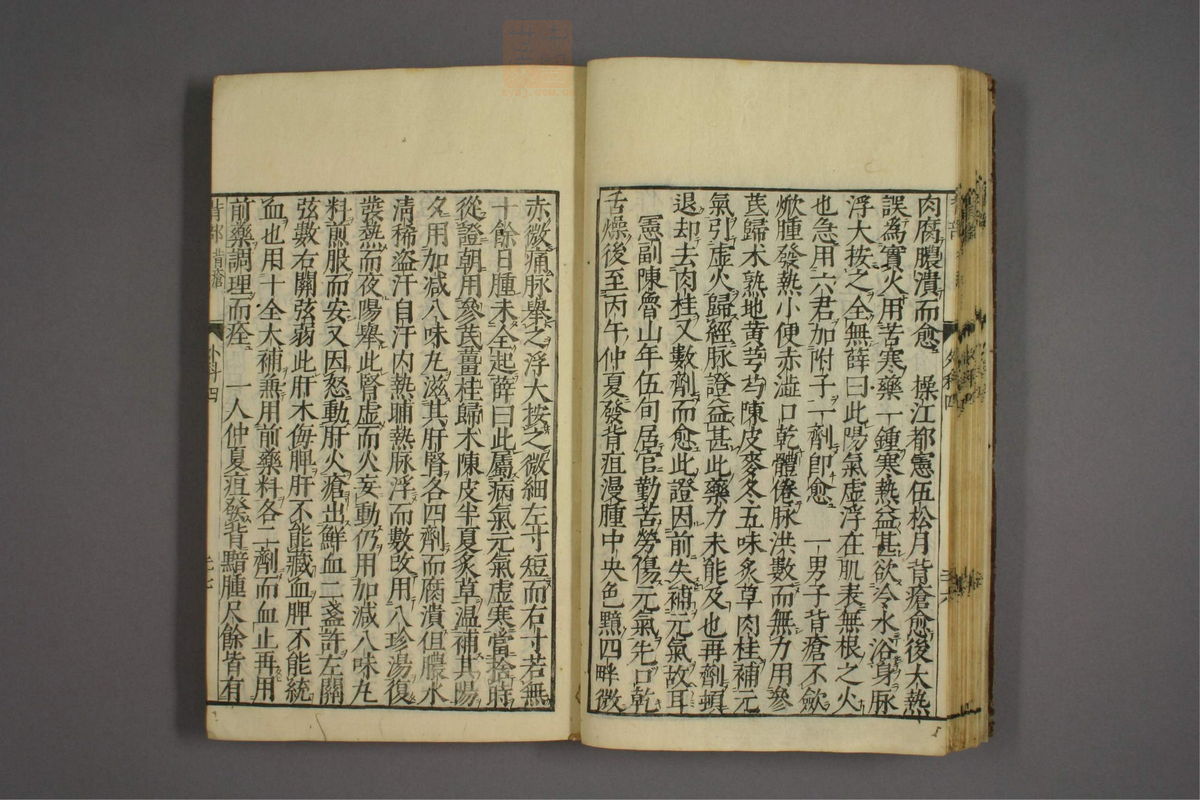 肉腐膿潰而愈　操江都憲伍松月背瘡愈後大熱
誤為實火用苦寒藥一鍾寒熱益甚欲冷水浴身脉
浮大按之全無薛曰此陽氣虛浮在肌表無根之火
也急用六君加附子一劑即愈　一男子背瘡不歛
焮腫發熱小便赤澁口乾體倦脉洪數而無力用參
芪歸术熟地黄芎芍陳皮麥冬五味炙草肉桂補元
氣引虛火歸經脉證益甚此藥力未能及也再劑頓
退却去肉桂又數劑而愈此證因前失補元氣故耳
憲副陳魯山年伍旬居官勤苦勞傷元氣先口乾
舌燥後至丙午仲夏發背疽漫腫中央色黯四畔微
赤微痛脉舉之浮大按之微細左寸短而右寸若無
十餘日腫未全起薛曰此屬病氣元氣虛寒當捨時
從證朝用參芪薑桂歸术陳皮半夏炙草温補其陽
夕用加減八味丸滋其肝腎各四劑而腐潰但膿水
清稀盜汗自汗内熱晡熱脉浮而數改用八珍湯復
發熱而夜陽舉此腎虛而火妄動仍用加減八味丸
料煎服而安又因怒動肝火瘡出鮮血二盞許左關
弦數右關弦弱此肝木侮脾肝不能藏血脾不能統
血也用十全大補兼用前藥料各二劑而血止再用
前藥調理而痊　一人仲夏疽發背黯腫尺餘皆有
背部　背瘡　外科四
外科四